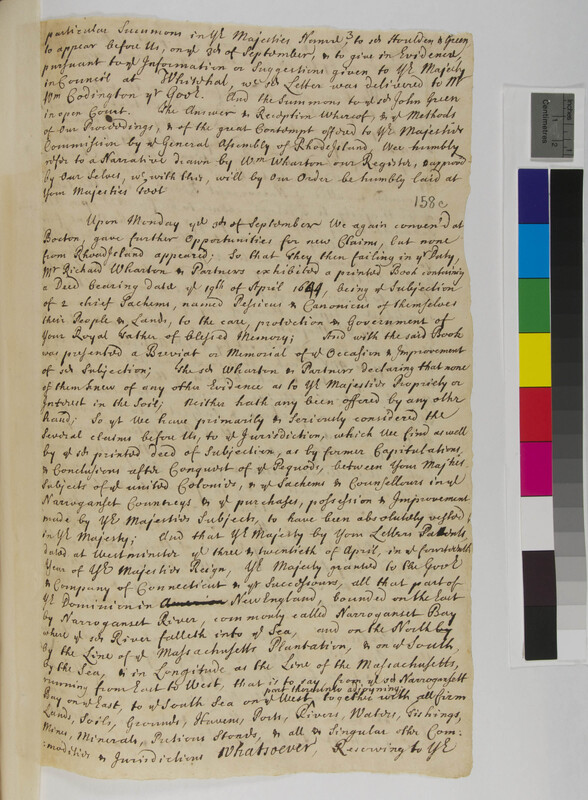 particular Summons in yr Majesties Name, to sd Houlden & Green
to appear before Us, on ye 3d of September, & to give in Evidence
pursuant to ye Information or Suggestions given to Yr Majesty
in Council at Whitehal, wch sd Letter was delivered to Mr
Wm Codington yr Govr. And the Summons to ye sd John Green
in open Court. The Answer & Reception Whereof, & ye Methods
of Our Proceedings, & of the great Contempt offered to Yr Majesties
Commission by ye General Assembly of Rhode Island, Wee humbly
refer to a Narrative drawn by Wm Wharton our Register, & approved
by Our Selves, wch with this, will by Our Order be humbly laid at
Your Majesties Foot
158c
Upon Monday ye 3d of September We again conven'd at
Boston, gave further Opportunities for new Claims, but none
from Rhoad Island appeared; So that they then failing in yr Duty,
Mr Richard Wharton & Partners exhibited a printed Book containing
a Deed bearing date ye 19th of April 1644, being ye Subjection
of 2 chief Sachems, named Pessicus & Canonicus of themselves
their People & Lands, to the care, protection & Government of
Your Royal Father of blessed Memory; And with the said Book
was presented a Breviat or Memorial of ye Occasion & Improvement
of sd Subjection; The sd Wharton & Partners declaring that none
of them knew of any other Evidence as to Yr Majesties Propriety or
Interest in the Soil; Neither hath any been offered by any other
hand; So yt We have primarily & Seriously considered the
Several claims before Us, to ye Jurisdiction, which We find as well
by ye sd printed Deed of Subjection, as by former Capitulations,
& Conclusions after Conquest of ye Pequods, between Your Majties
Subjects of ye united Colonies, & ye Sachems & Counsellours in ye
Narroganset Countreys & ye purchases, possession & Improvement
made by Yr Majesties Subjects, to have been absolutely vested
in Yr Majesty; And that Yr Majesty by Your Letters Pattents,
dated at Westminster ye three & twentieth of April, in ye fourteenth
Year of Yr Majesties Reign, Yr Majesty granted to the Govr
& Company of Connecticut & yr Successours, all that part of
Yr Dominion in American New England, bounded on the East
by Narroganset River, commonly called Narroganset Bay
where ye sd River falleth into ye Sea, and on the North by
by the Line of ye Massachusetts Plantation, & on ye South,
by the Sea, & in Longitude as the Line of the Massachusetts,
running from East to West, that is to say, from ye sd Narrogansett
Bay on ye East, to ye South Sea on ye West, together with all firm
part thereunto adjoyning
Lands, Soils, Grounds, Havens, Ports, Rivers, Waters, Fishings,
Mines, Minerals, Pretious Stones, & all & Singular othr Com-
modities & Jurisdictions whatsoever, Reserving to Yr